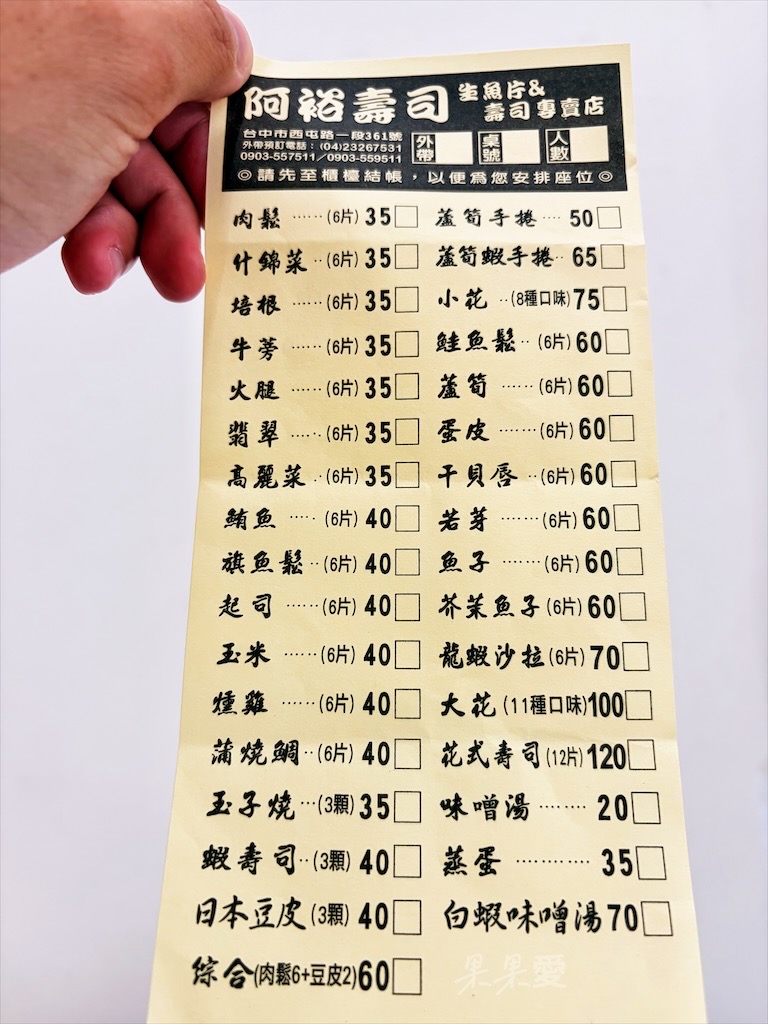 阿裕壽司 生魚片&壽司專賣店
台中市西屯路一段361號
外帶預訂電話：(04)23267531
0903-557511／0903-559511
外帶 桌號 人數
◎請先至櫃檯結帳，以便為您安排座位◎
肉鬆……(6片) 35
什錦菜··(6片) 35
培根……(6片) 35
牛蒡……(6片) 35
火腿……(6片) 35
翡翠……(6片) 35
高麗菜··(6片) 35
鮪魚……(6片) 40
旗魚鬆··(6片) 40
起司……(6片) 40
玉米……(6片) 40
燻雞……(6片) 40
蒲燒鯛··(6片) 40
玉子燒…(3顆) 35
蝦壽司··(3顆) 40
日本豆皮(3顆) 40
綜合(肉鬆6+豆皮2) 60
蘆筍手捲…· 50
蘆筍蝦手捲·· 65
小花··(8種口味) 75
鮭魚鬆··(6片) 60
蘆筍……(6片) 60
蛋皮……(6片) 60
干貝唇··(6片) 60
若芽……(6片) 60
魚子……(6片) 60
芥茉魚子(6片) 60
龍蝦沙拉(6片) 70
大花(11種口味) 100
花式壽司(12片) 120
味噌湯…… 20
蒸蛋……… 35
白蝦味噌湯 70
果果愛